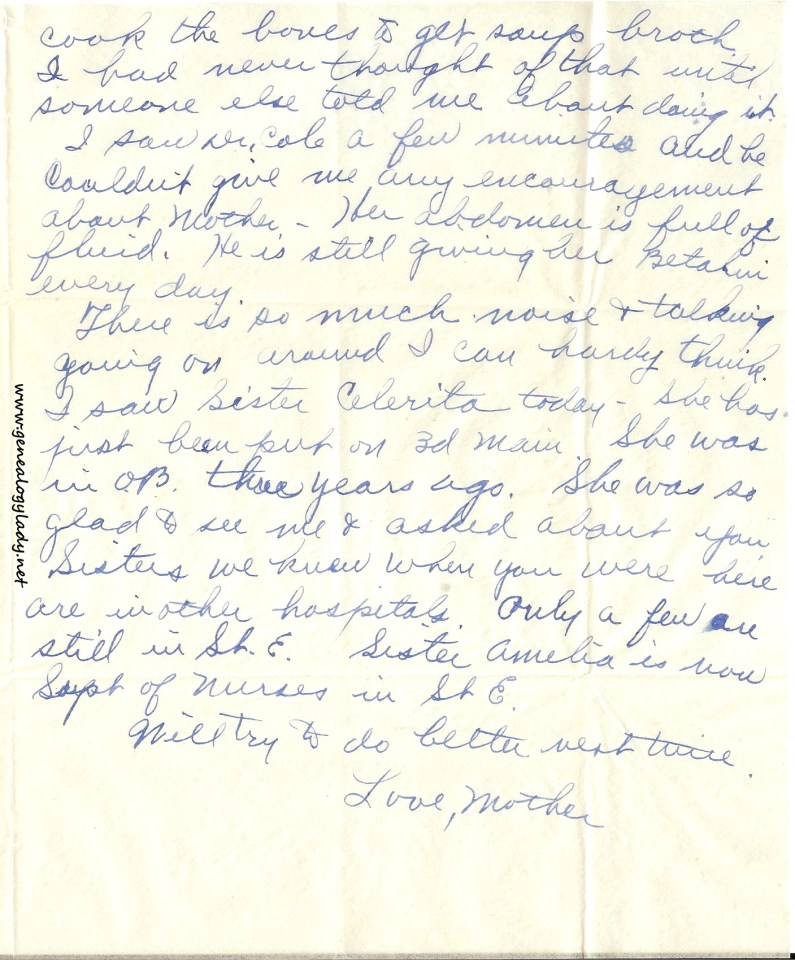 cook the bones to get soup broth.
I had never thought of that until
someone else told me about doing it.
I saw Dr. Cole a few minutes and he
Couldn't give me any encouragement
about Mother - Her abdomen is full of
fluid. He is still giving her Betalin
every day.
There is so much noise & talking
going on around I can hardly think.
I saw Sister Celerita today - She has
just been put on 3d main. She was
in O.B. three years ago. She was so
glad to see me & asked about you
Sisters we knew when you were here
are in other hospitals. Only a few are
still in St. E. Sister Amelia is now
Supt of Nurses in St E.
Will try to do better next time.
Love, Mother
www.genealogylady.net